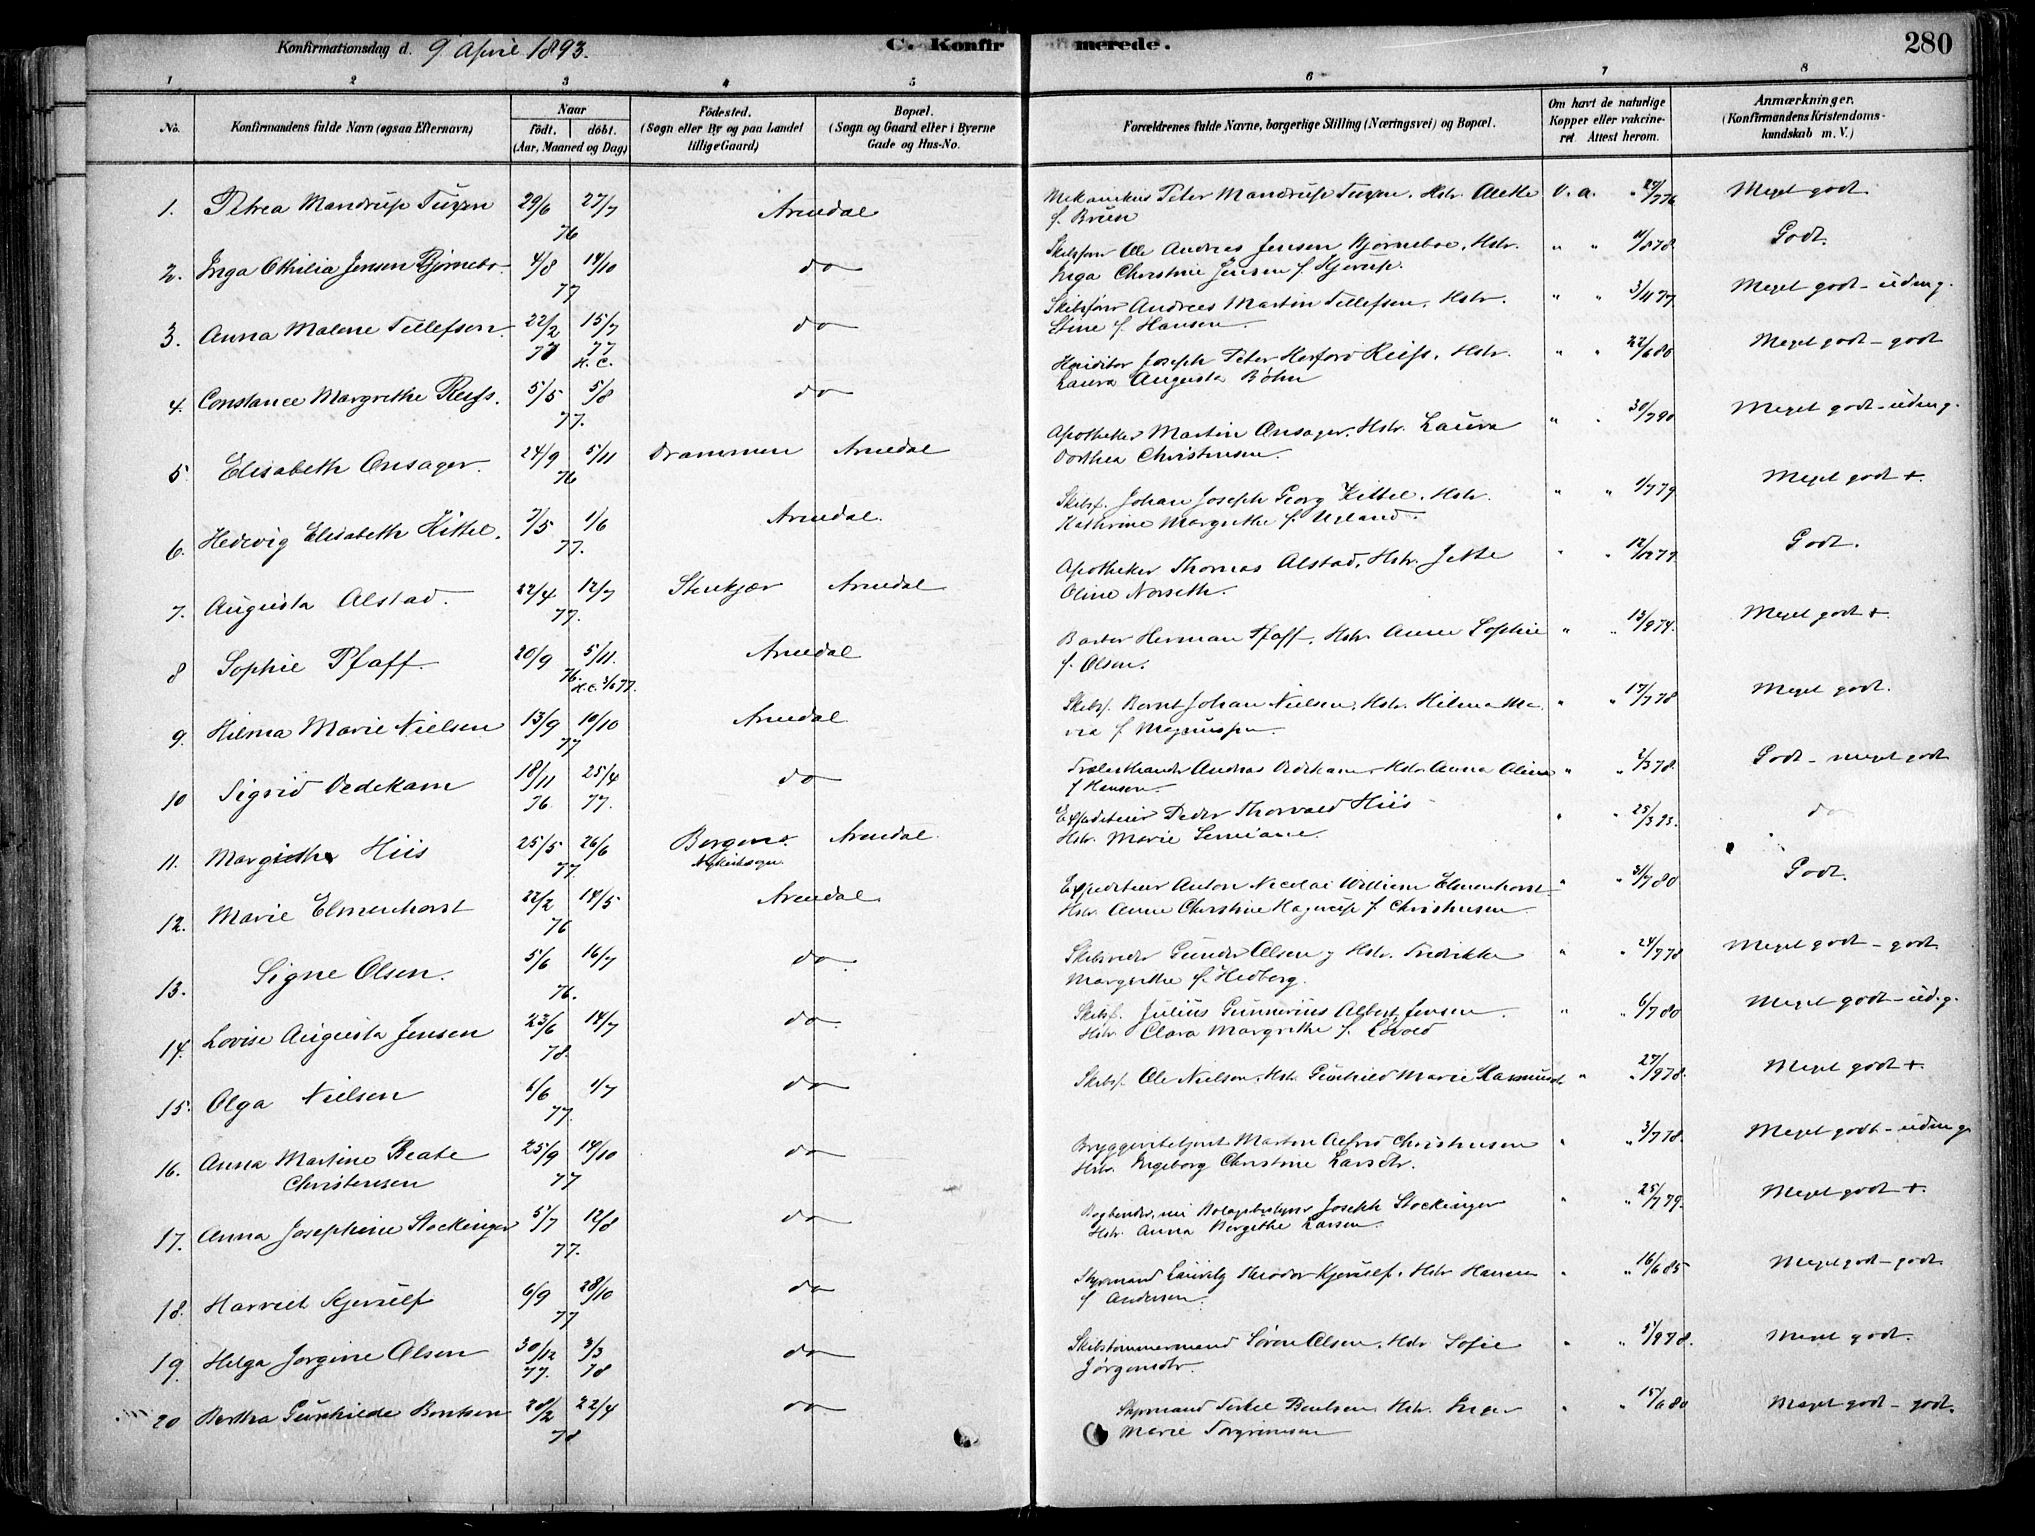 Konfirmationsdag d. 9 April 1893.
C. Konfirmerede.
280
1 2 3 4 5 6 7 8
No.
Konfirmandens fulde Navn (ogsaa Efternavn)
Naar
født. døbt.
(Aar, Maaned og Dag)
Fødested.
(Sogn eller By og paa Landet
tillige Gaard)
Bopæl.
(Sogn og Gaard eller i Byerne
Gade og Hus-No.
Forældrenes fulde Navne, borgerlige Stilling (Næringsvei) og Bopæl.
Om havt de naturlige
Kopper eller vakcine-
ret. Attest herom.
Anmærkninger.
(Konfirmandens Kristendoms-
kundskab m. V.)
1. Petrea Mandrup 29/6 27/7 Arendal Mekanikus Peter Mandrup Hstr. Alette v. a. Meget godt
76 f. Bruun
2. Inga Othilia Jensen Bjørnebo 4/8 14/10 do Skibsfører Ole Andreas Jensen Bjørneboe, Hstr. " " Godt.
77 Inga Christine Jensen f.
3. Anna Malene Tellefsen 22/2 15/7 do Skibsfører Andreas Martin Tellefsen, Hstr. " " 3/11 77 Meget godt - udm g.
77 H. C. Stine f. Hansen
4. Constance Margrethe 5/5 5/8 do Joseph Peter Hstr. " " 22/6 80 Meget godt - godt
77. Laura Augusta Bøhn
5 Elisabeth Ansager. 24/9 5/11 Drammen Arendal Apotheker Martin Ansager, Hstr. Laura " " 30/7 90 Meget godt - udm g.
76 Dorthea Christensen.
6. Hedevig Elisabeth Kittel. 7/5 1/6 Arendal. Skibsf. Johan Joseph Georg Kittel, Hstr. " " 1/7 79 Meget godt +.
77. Kathrine Margrethe f. Ugland.
7. Augusta Alstad. 22/4 12/7 Stenkjær Arendal Apotheker Thomas Alstad, Hstr. Jette " " Godt.
77. Oline Norseth.
8 Sophie Pfaff. 20/9 5/11. Arendal Barber Herman Pfaff, Hstr. Anne Sophie " " Meget godt +
76. H. C. 3/6 77. f. Olsen.
9. Hilma Marie Nielsen 13/9 10/10 Arendal Skibsf. Bernt Johan Nielsen, Hstr. Hilma Ma- " " 17/7 78 Meget godt.
77 ria f.
10 Sigrid Dedekam 18/11 25/4 do Andreas Dedekam, Hstr. Anna Oline " " 2/3 78. Godt - meget godt
76. 77. f Hansen.
11. Margrethe Hiis 25/5 26/6 Bergens Arendal. Expediteur Peder Thorvald Hiis " " 25/3 93. do
77. Nykirkesogn. Hstr. Marie
12. Marie Elmenhorst 22/2 14/5 Arendal. Expediteur Anton Nicolai William Elmenhorst " " 3/7 80 Godt.
76 Hstr. Anne Christine Hagerup f Christensen
13. Signe Olsen. 5/6 16/7 do Skibsreder Gunder Olsen, Hstr. Fredrikke " " 24/7 78 Meget godt - godt
76. Margrethe f. Hedberg.
14. Lovise Augusta Jensen 23/6 14/7 do Skibsf. Julius Gunnerius Albert Jensen. " " 6/7 80 Meget godt - ud. g.
78. Hstr. Clara Margrethe f.
15. Olga Nielsen 6/6 1/7 do Skibsf. Ole Nielsen, Hstr. Gunhild Marie " " 27/9 78. Meget godt +.
77.
16. Anna Martine Beate 25/9 14/10 do Martin Alfred Christensen " " 3/7 78. Meget godt - udm g.
Christensen 77 Hstr. Ingeborg Christine Larsdtr.
17. Anna Josephine Stockinger 5/7 12/8 do Bogbinder, nu Joseph Stockinger " " 25/7 79. Meget godt +.
77. Hstr. Anna Bergithe Larsen.
18. Harriet Kjerulf 6/9 28/10 do Styrmand Lauritz Theodor Kjerulf, Hstr. " " 16/6 85 Meget godt - godt
77 f Andersen.
19. Helga Jorgine Olsen 30/12 3/3 do Skibstømmermand Søren Olsen, Hstr. Sofie " " 5/9 78. Meget godt.
77. 78 Jørgensdtr.
20 Bertha Gunhilde Bentsen 28/2 22/4 do Styrmand Terkel Bentsen, Hstr. Inger " " 15/6 80 Meget godt - godt.
78 Marie Torgrimsen